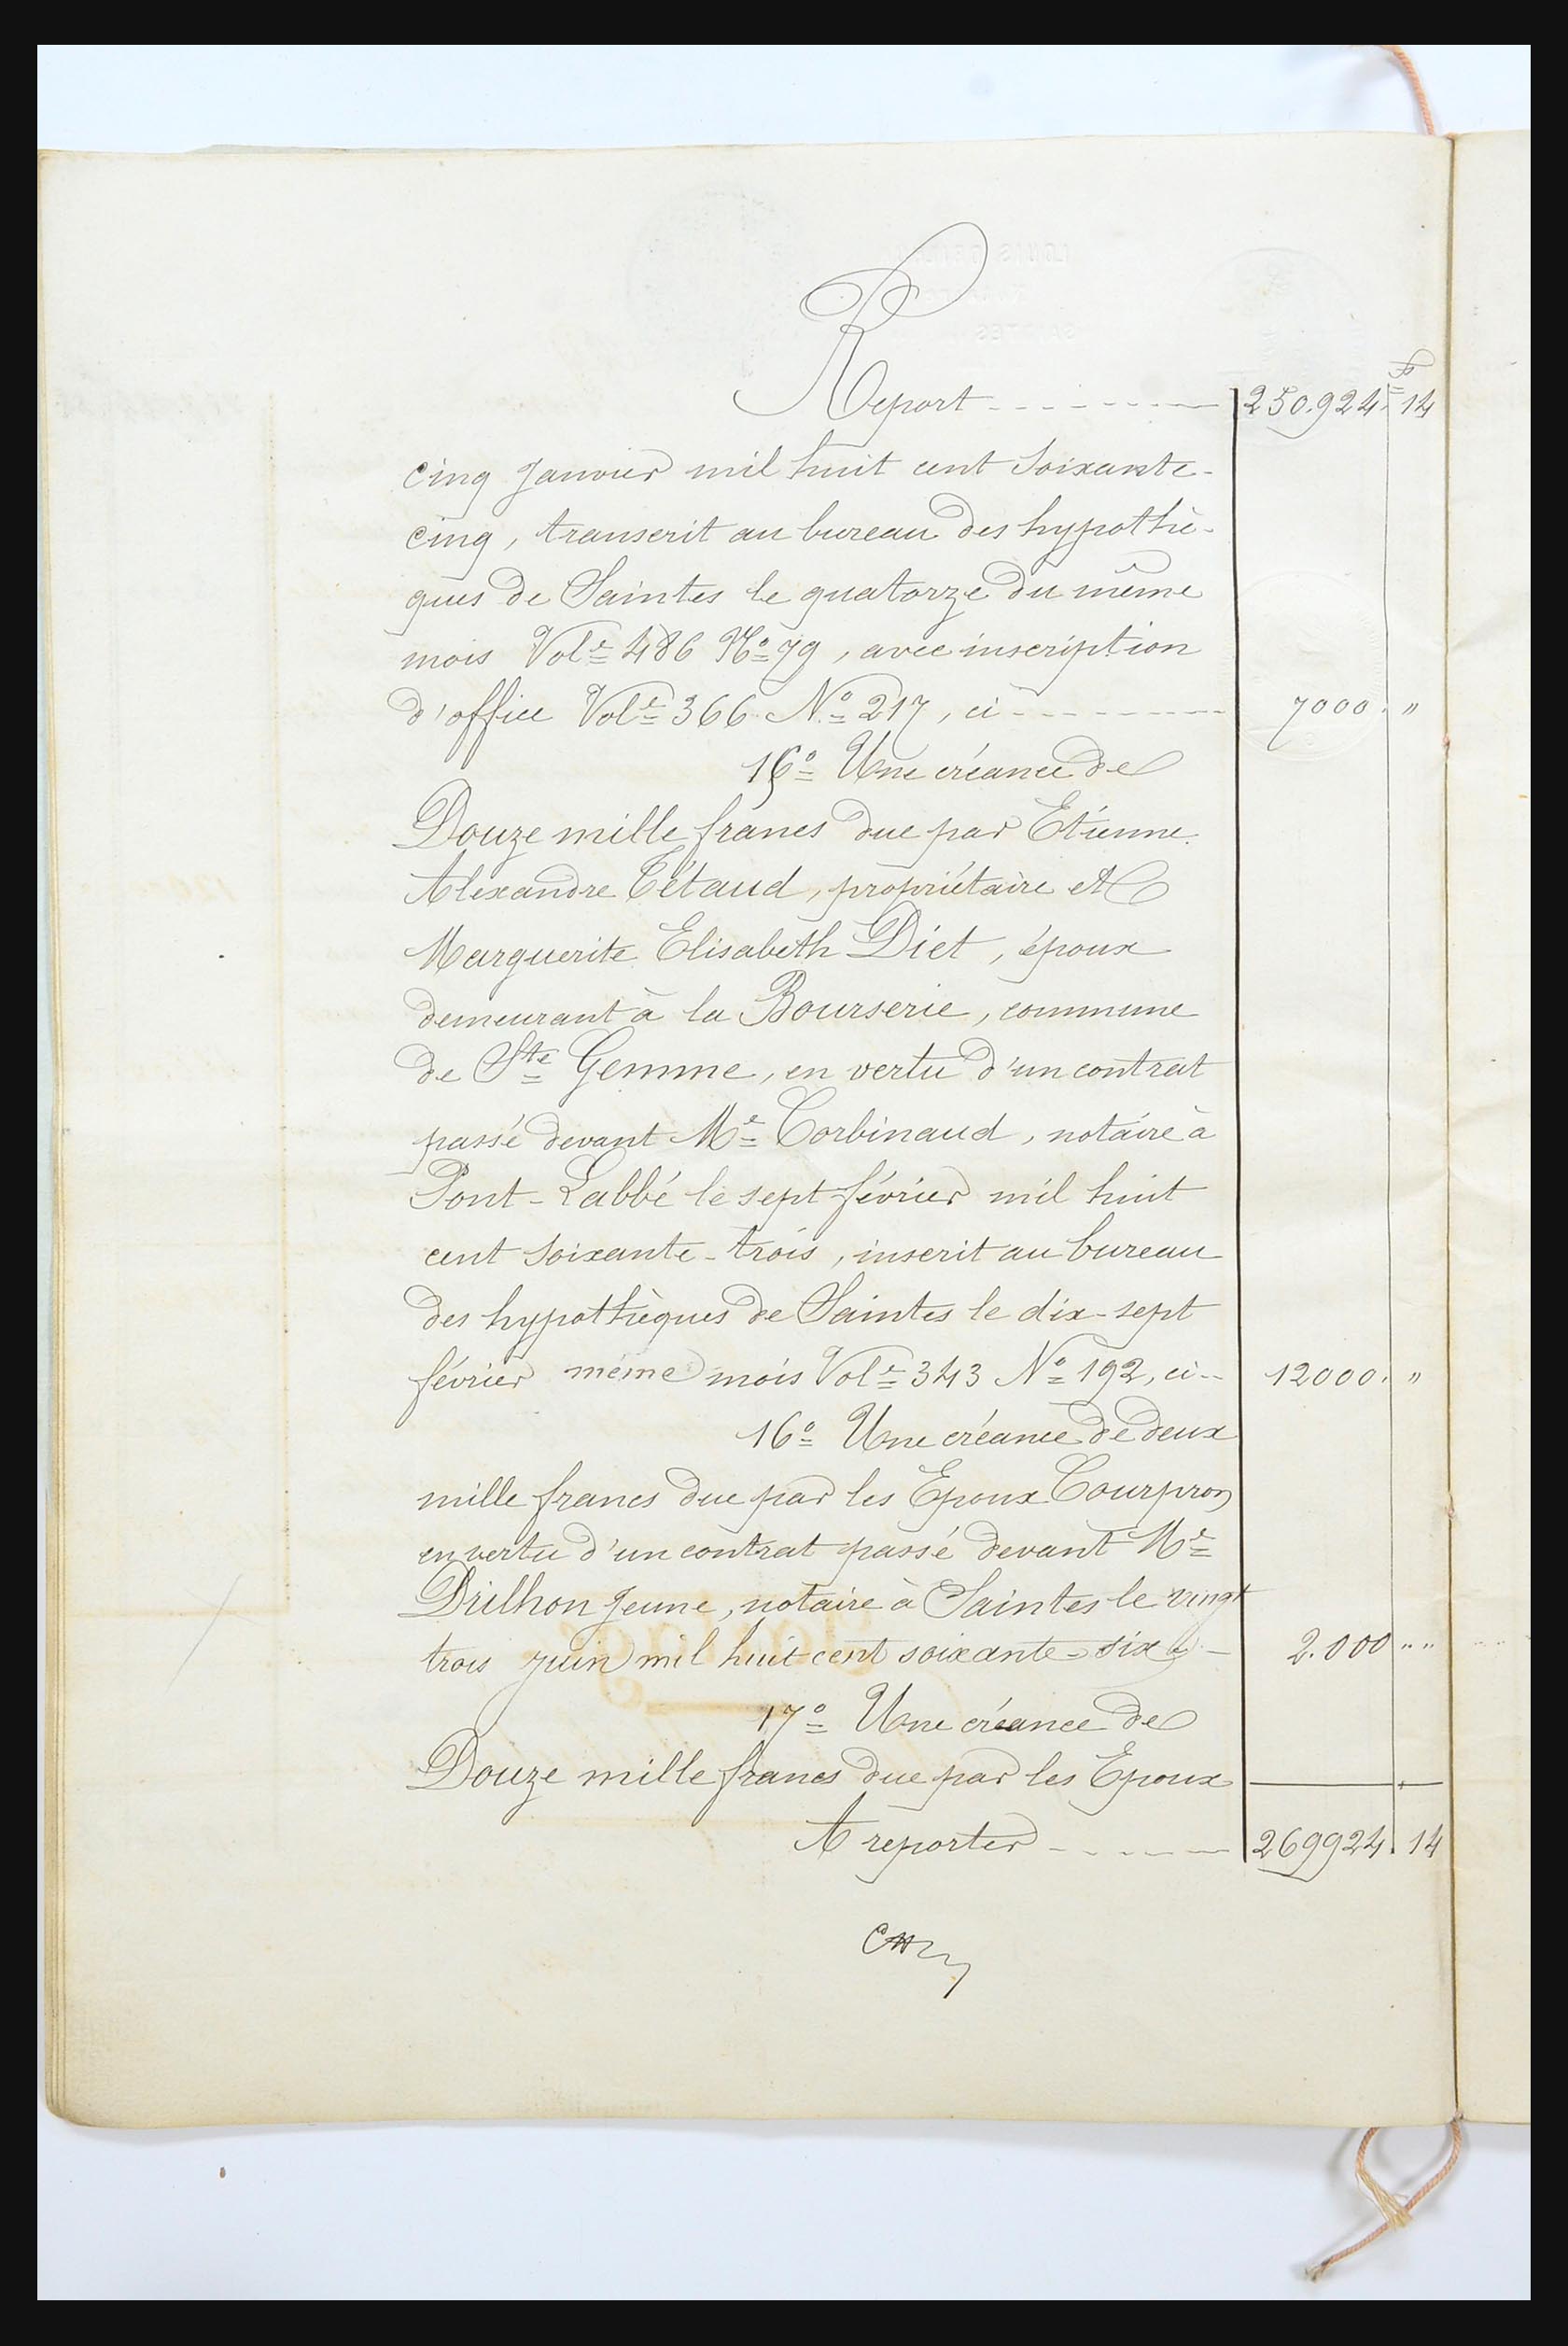 Report - - - - - - - 250.924.F 14
cinq Janvier mil huit cent soixante-
cinq, transcrit au bureau des hypothè-
ques de Saintes le quatorze du même
mois Vol.e 486 No 79, avec inscription
d'office Vol.e 366. No 217, ci - - - - - - - 7000. "
15o Une créance de
Douze mille francs due par Etienne
Alexandre Tétaud, propriétaire et
Marguerite Elisabeth Diet, époux
demeurant à la Bourserie, commune
de Ste Gemme, en vertu d'un contrat
passé devant Me Corbinaud, notaire à
Pont-Labbé le sept février mil huit
cent soixante-trois, inscrit au bureau
des hypothèques de Saintes le dix-sept
février même mois Vol.e 343 No 192, ci - - 12000. "
16o Une créance de deux
mille francs due par les Epoux Courpron
en vertu d'un contrat passé devant Me
Drilhon Jeune, notaire à Saintes le vingt
trois juin mil huit cent soixante-six - 2.000 " "
17o Une créance de
Douze mille francs due par les Epoux
A reporter - - - - - 269924. 14